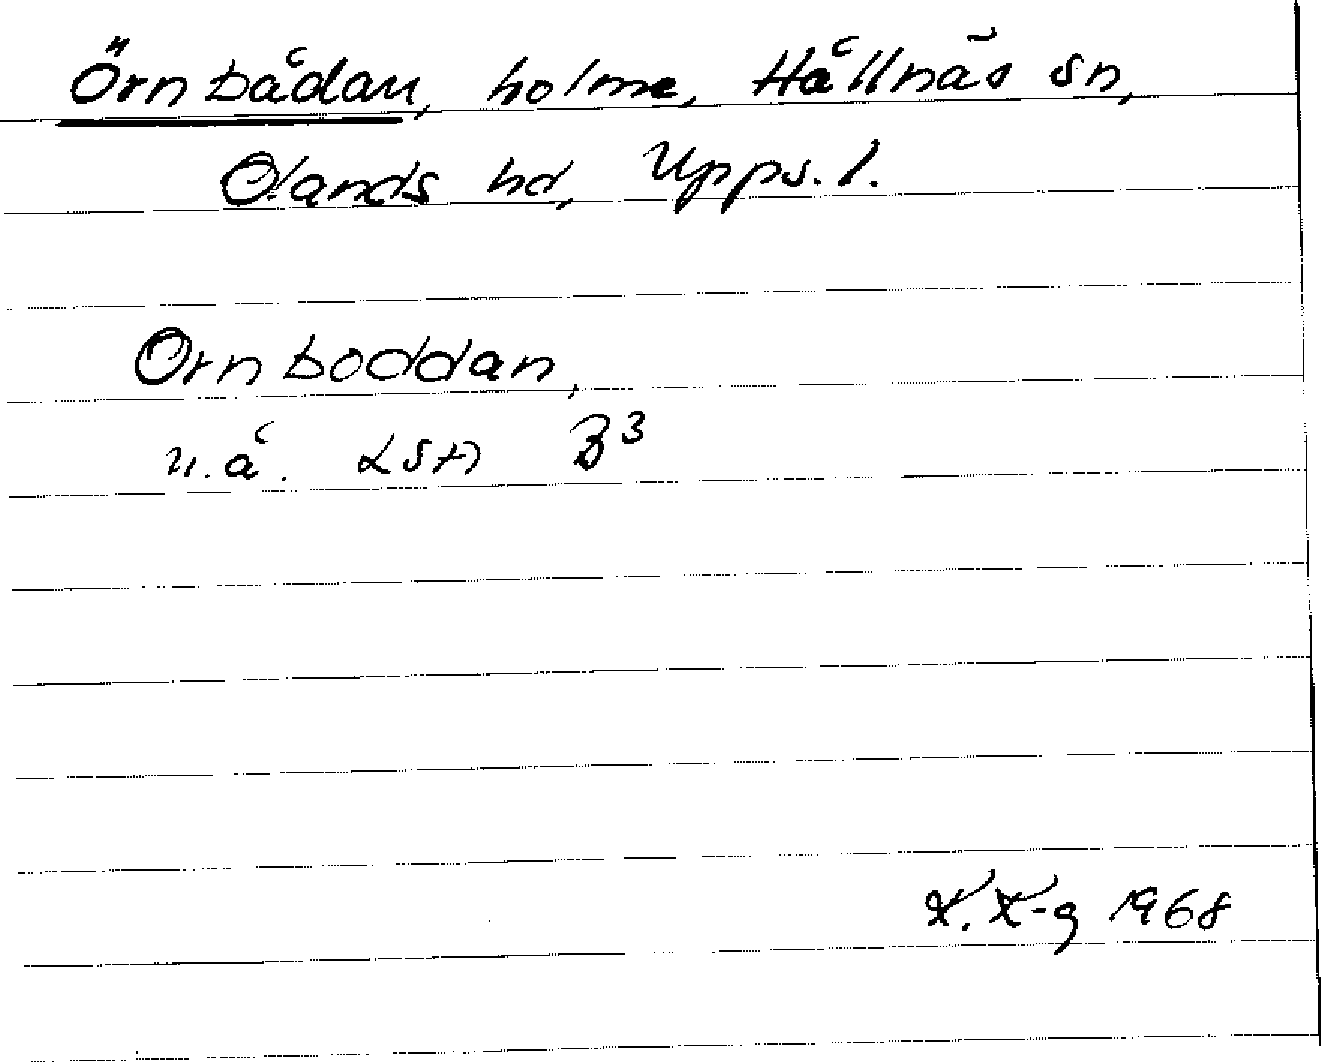 Örnbådan, holme, Hållnäs sn,
Olands hd, Upps. l.
Ornboddan,
u.å. LSA B³
K. K-g 1968